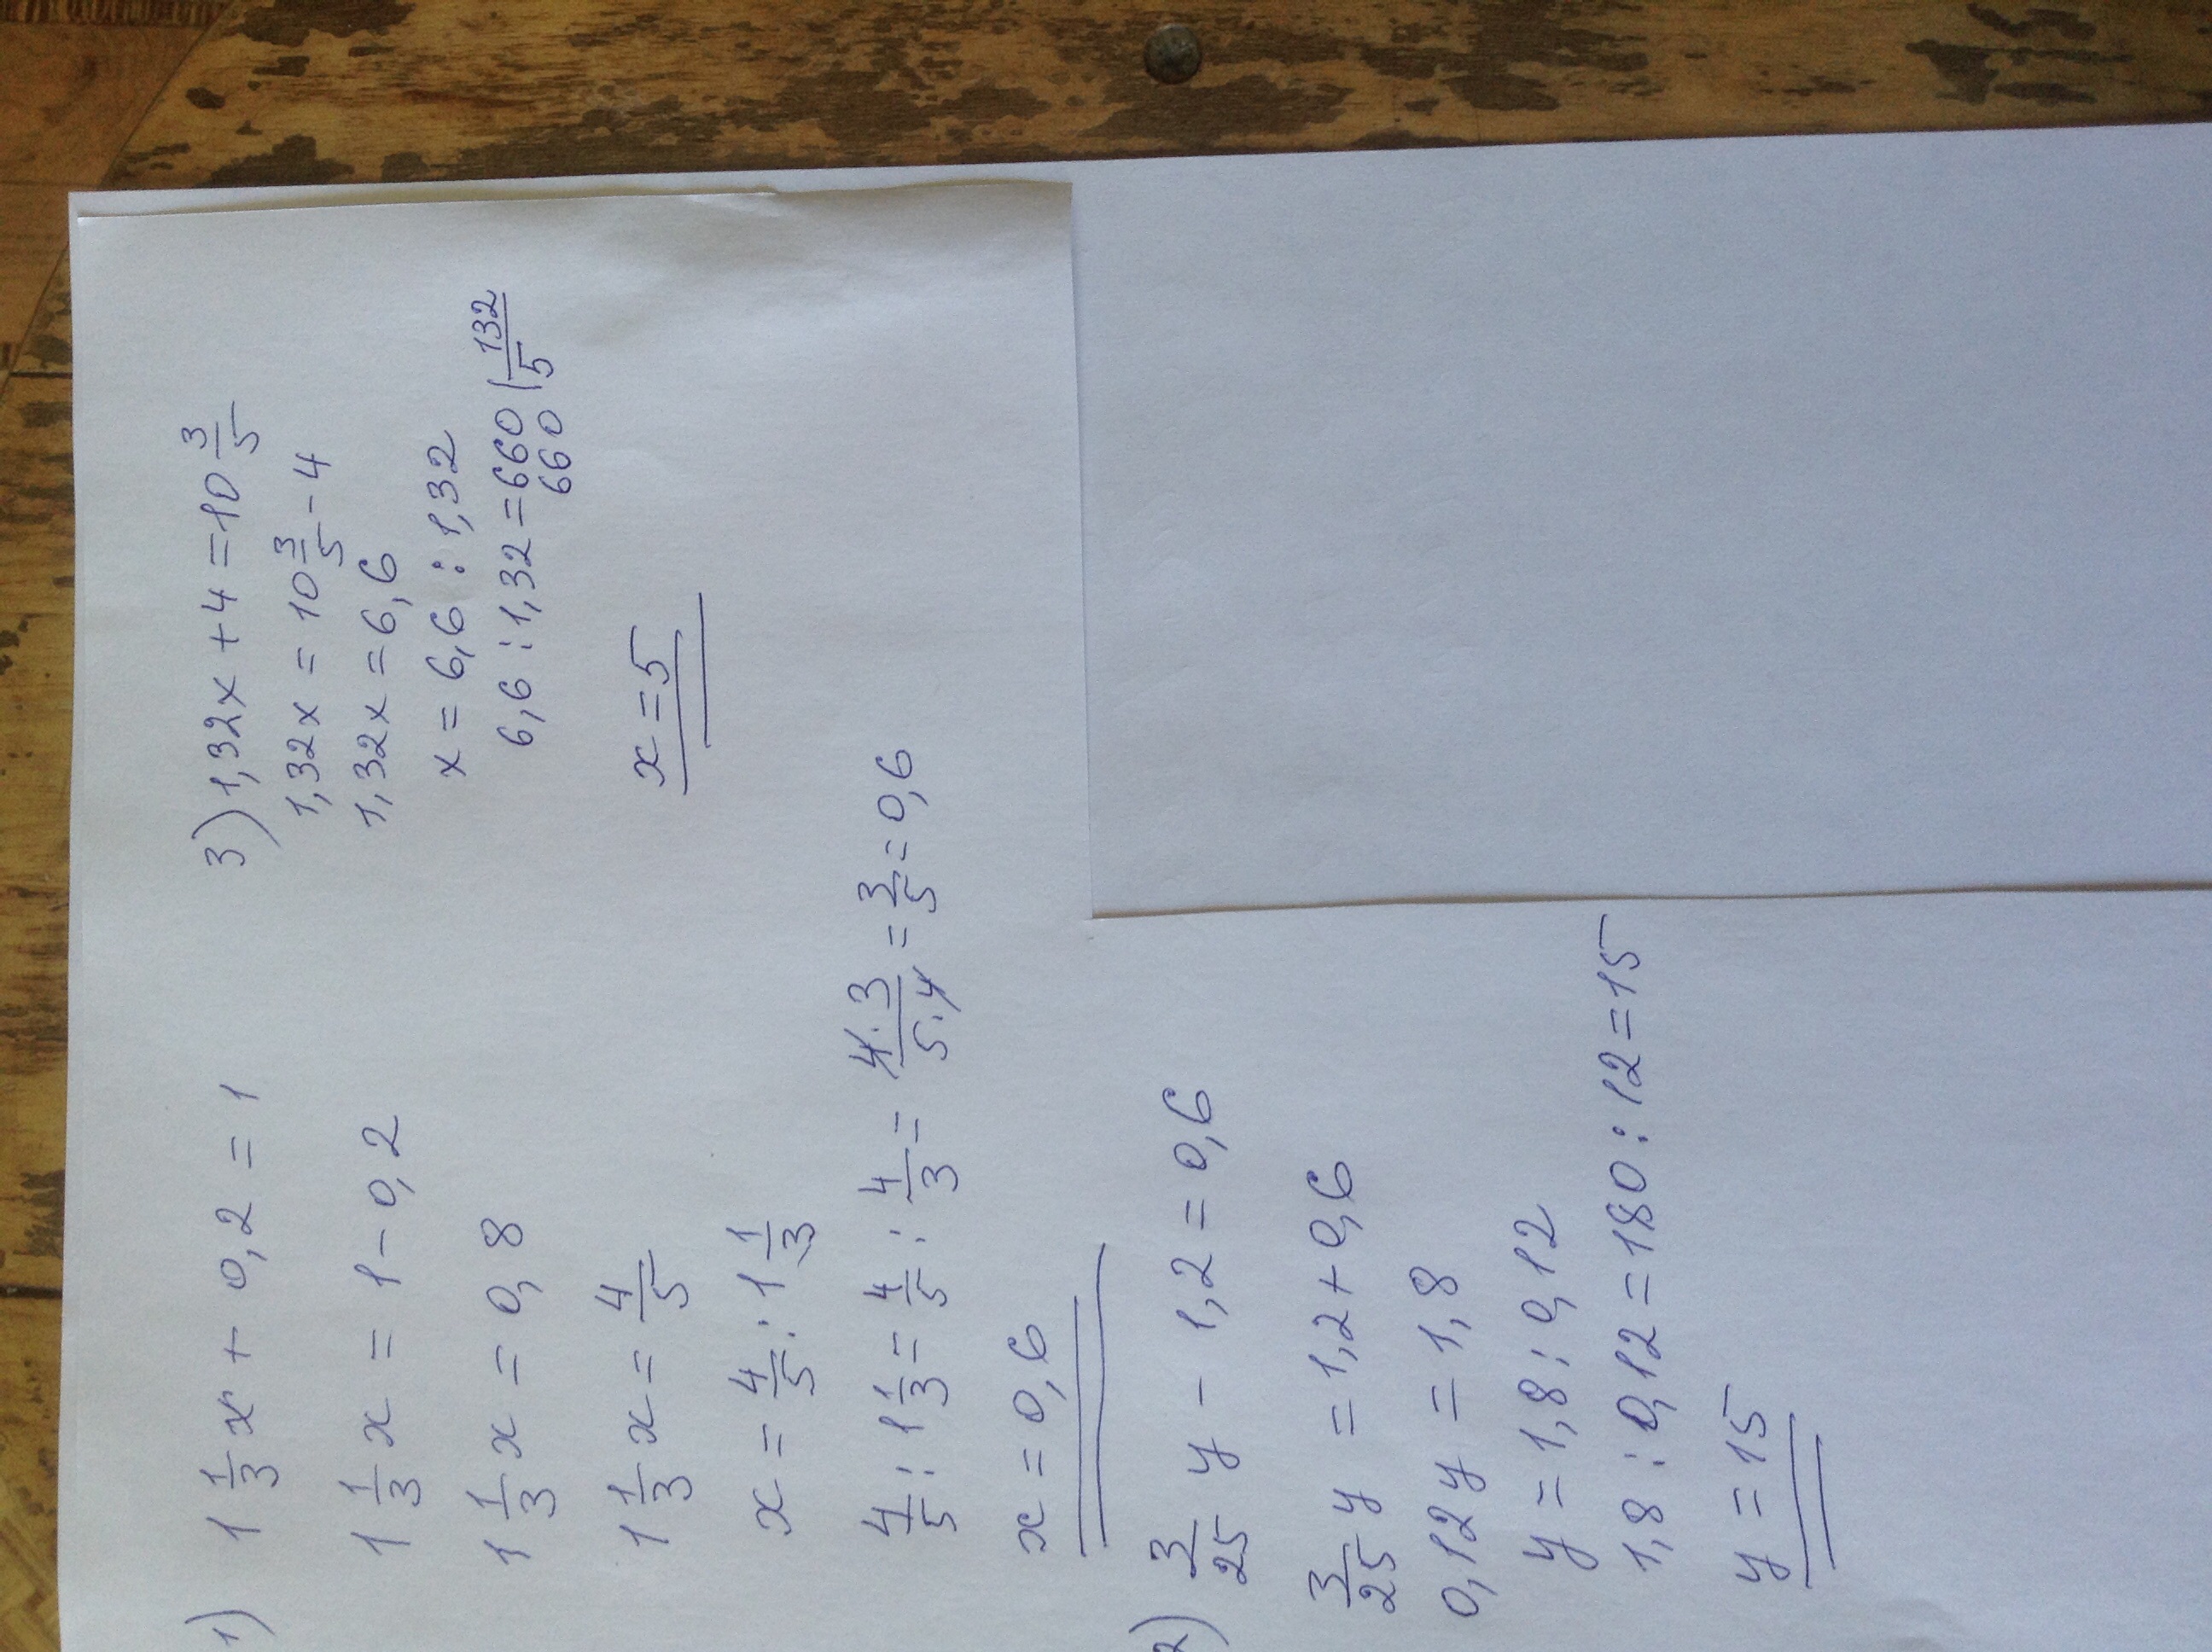 1) 1 1/3 x + 0,2 = 1
1 1/3 x = 1 - 0,2
1 1/3 x = 0,8
1 1/3 x = 4/5
x = 4/5 : 1 1/3
4/5 : 1 1/3 = 4/5 : 4/3 = 4·3/5·4 = 3/5 = 0,6
x = 0,6
2) 3/25 y - 1,2 = 0,6
3/25 y = 1,2 + 0,6
0,12 y = 1,8
y = 1,8 : 0,12
1,8 : 0,12 = 180 : 12 = 15
y = 15
3) 1,32x + 4 = 10 3/5
1,32x = 10 3/5 - 4
1,32x = 6,6
x = 6,6 : 1,32
6,6 : 1,32 = 660 | 132
660 5
x = 5